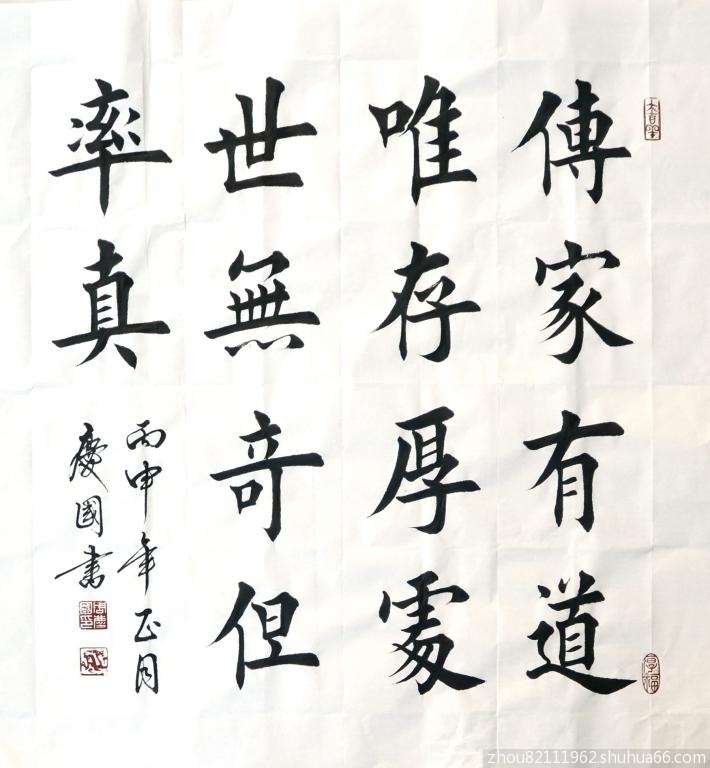 傳家有道
唯存厚處
世無奇但
率真
丙申年正月
慶國书
吉聖
厚福
周慶國印
zhou82111962.shuhua66.com